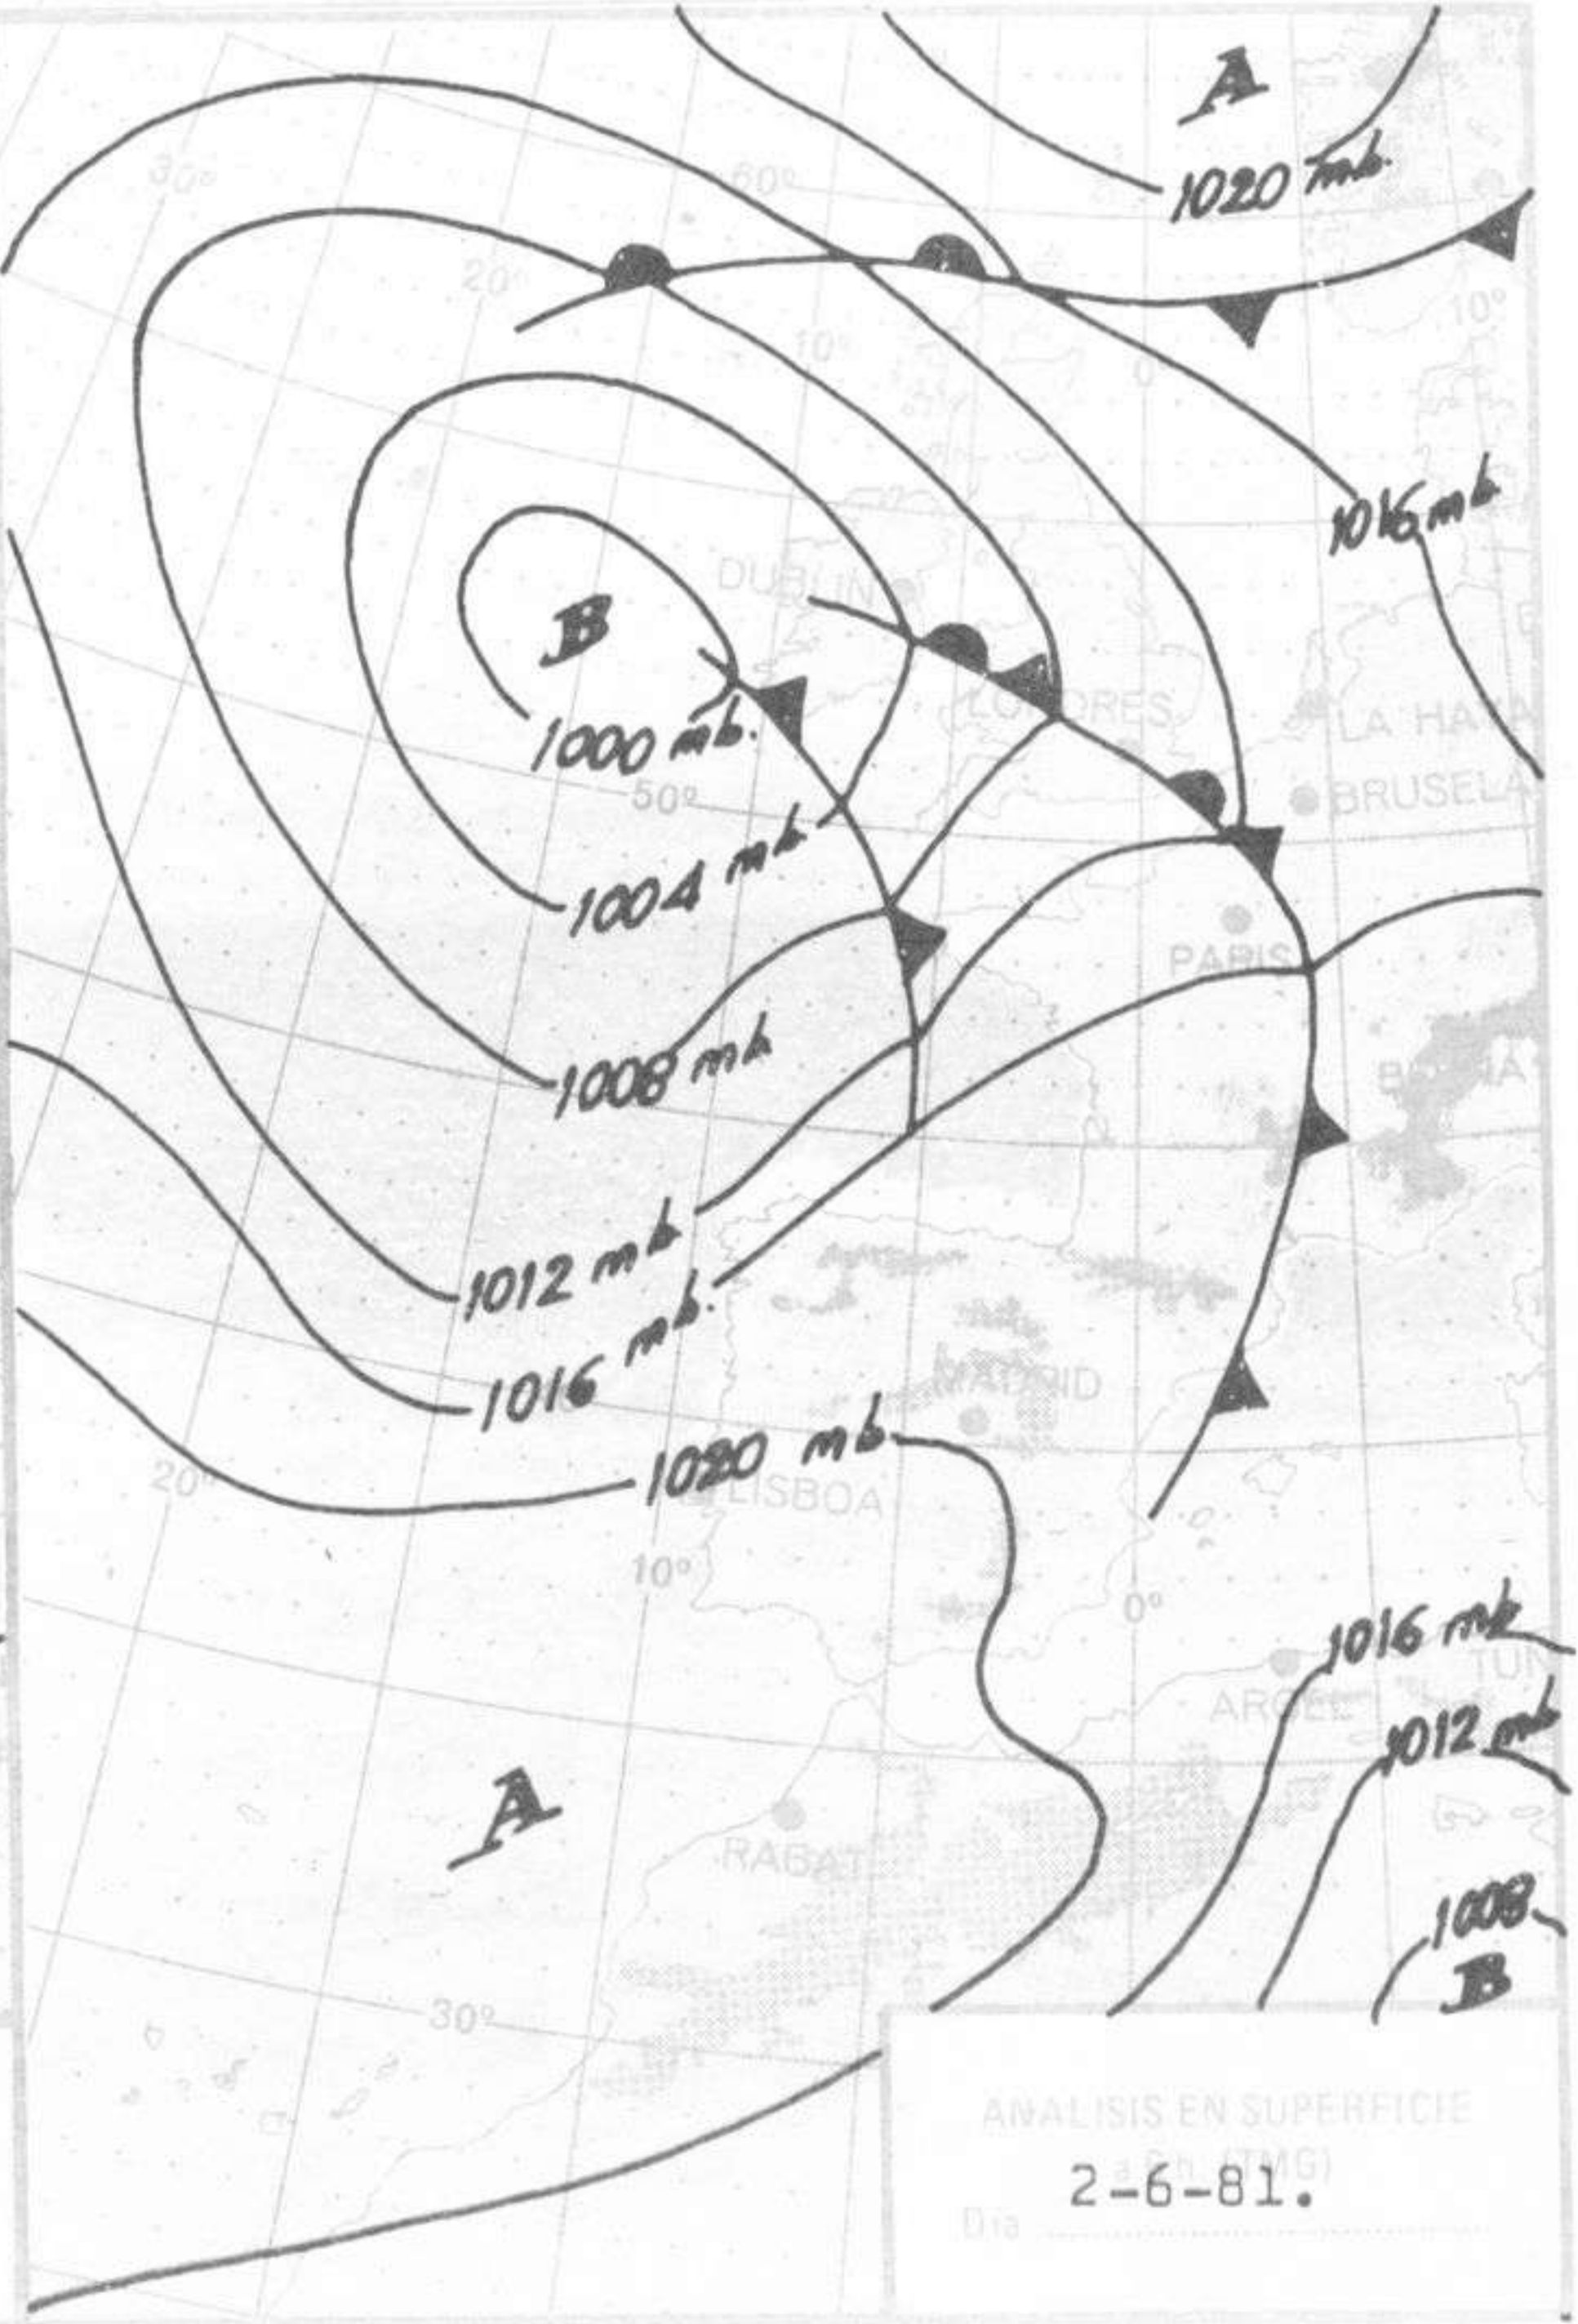 A
1020 mb.
30°
60°
20°
10°
10°
0°
1016 mb
DUBLIN
B
LONDRES
LA HAYA
1000 mb.
50°
BRUSELA
1004 mb.
PARIS
1008 mb
1012 mb
1016 mb.
MADRID
1020 mb
20°
LISBOA
10°
0°
1016 mb
TUN
ARGEL
1012 mb
A
RABAT
1008
B
30°
ANALISIS EN SUPERFICIE
(TMG)
2-6-81.
Dia